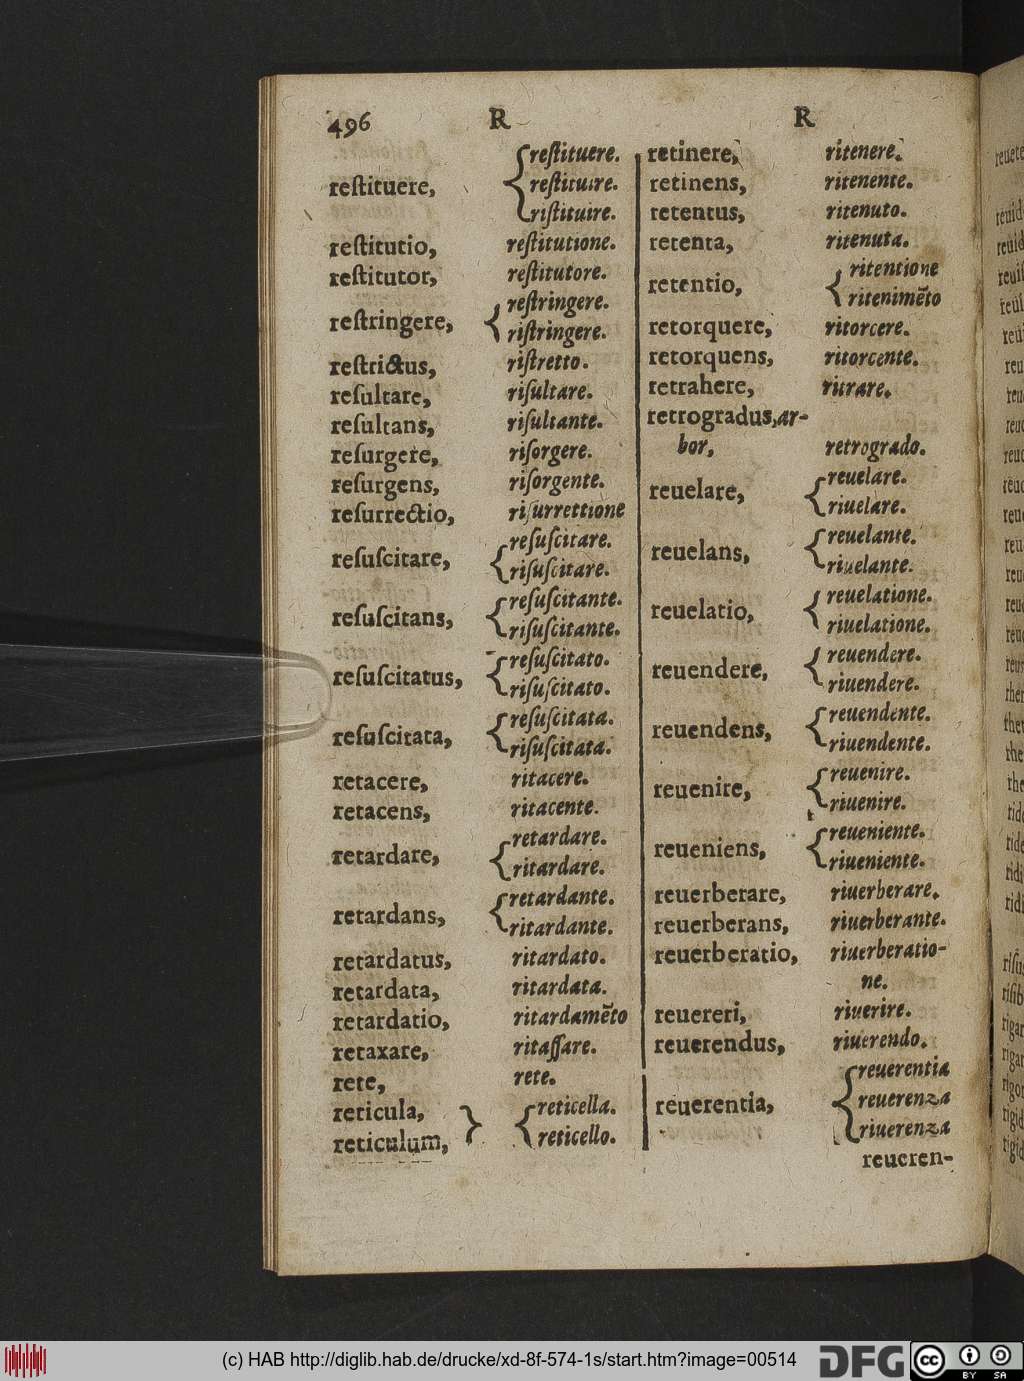 496 R R
reſtituere, { reſtituere.
reſtituire.
riſtituire.
reſtitutio, reſtitutione.
reſtitutor, reſtitutore.
reſtringere, { reſtringere.
riſtringere.
reſtrictus, riſtretto.
reſultare, riſultare.
reſultans, riſultante.
reſurgere, riſorgere.
reſurgens, riſorgente.
reſurrectio, riſurrettione
reſuſcitare, { reſuſcitare.
riſuſcitare.
reſuſcitans, { reſuſcitante.
riſuſcitante.
reſuſcitatus, { reſuſcitato.
riſuſcitato.
reſuſcitata, { reſuſcitata.
riſuſcitata.
retacere, ritacere.
retacens, ritacente.
retardare, { retardare.
ritardare.
retardans, { retardante.
ritardante.
retardatus, ritardato.
retardata, ritardata.
retardatio, ritardamẽto
retaxare, ritaſſare.
rete, rete.
reticula, } { reticella.
reticulum, reticello.
retinere, ritenere.
retinens, ritenente.
retentus, ritenuto.
retenta, ritenuta.
retentio, { ritentione
ritenimẽto
retorquere, ritorcere.
retorquens, ritorcente.
retrahere, ritrare.
retrogradus, ar-
bor, retrogrado.
reuelare, { reuelare.
riuelare.
reuelans, { reuelante.
riuelante.
reuelatio, { reuelatione.
riuelatione.
reuendere, { reuendere.
riuendere.
reuendens, { reuendente.
riuendente.
reuenire, { reuenire.
riuenire.
reueniens, { reueniente.
riueniente.
reuerberare, riuerberare.
reuerberans, riuerberante.
reuerberatio, riuerberatio-
ne.
reuereri, riuerire.
reuerendus, riuerendo.
reuerentia, { reuerentia
reuerenza
riuerenza
reueren-
(c) HAB http://diglib.hab.de/drucke/xd-8f-574-1s/start.htm?image=00514
DFG
cc BY SA